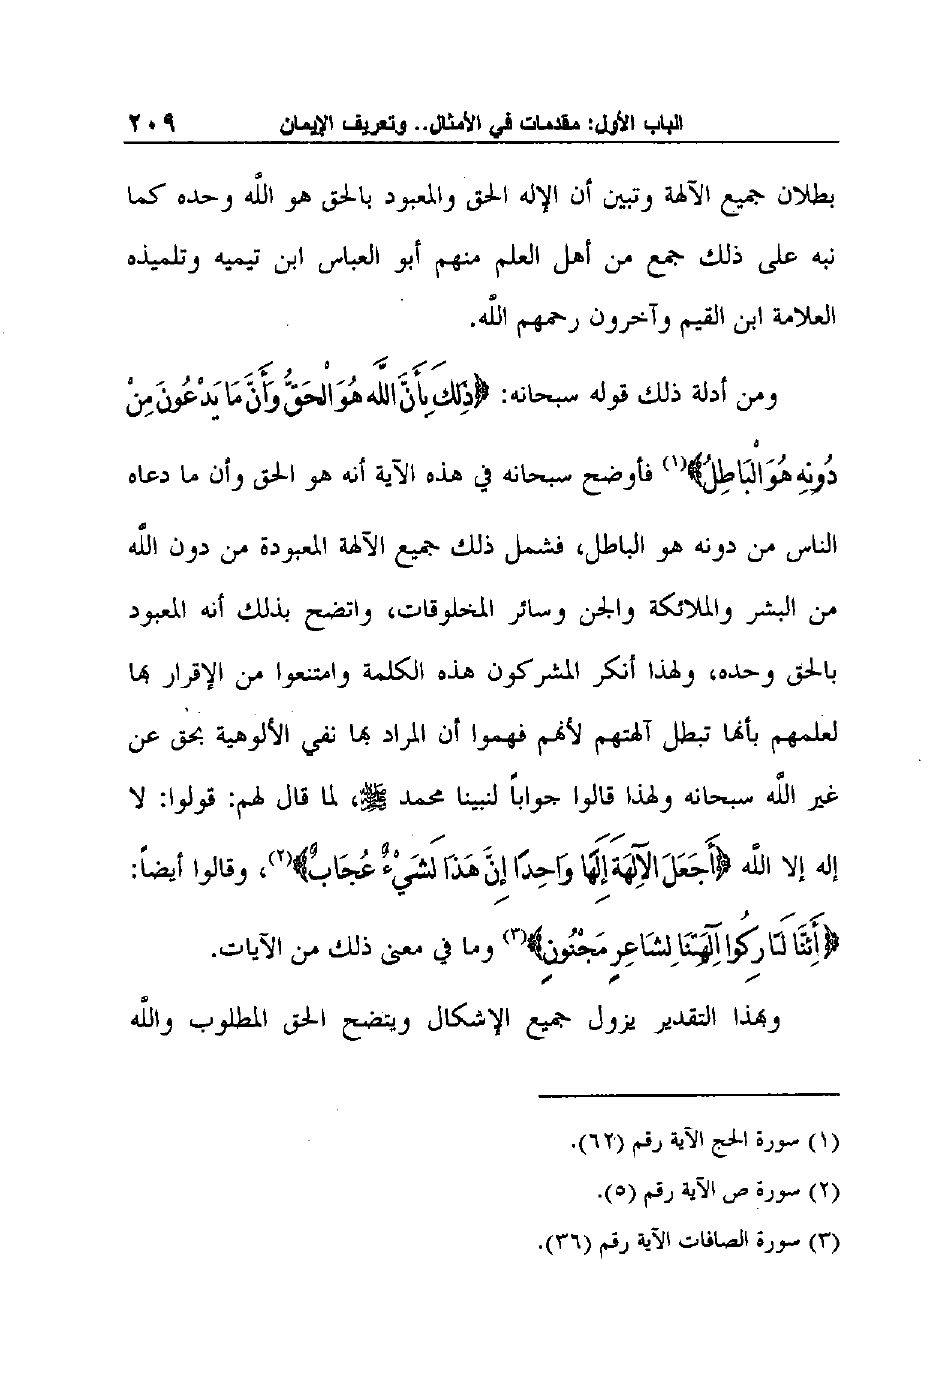 الباب الأول: مقدمات في الأمثال.. وتعريف الإيمان ٢٠٩
بطلان جميع الآلهة وتبين أن الإله الحق والمعبود بالحق هو الله وحده كما
نبه على ذلك جمع من أهل العلم منهم أبو العباس ابن تيميه وتلميذه
العلامة ابن القيم وآخرون رحمهم الله.
ومن أدلة ذلك قوله سبحانه: ﴿ذَلِكَ بِأَنَّ اللَّهَ هُوَ الْحَقُّ وَأَنَّ مَا يَدْعُونَ مِنْ
دُونِهِ هُوَ الْبَاطِلُ﴾(١) فأوضح سبحانه في هذه الآية أنه هو الحق وأن ما دعاه
الناس من دونه هو الباطل، فشمل ذلك جميع الآلهة المعبودة من دون الله
من البشر والملائكة والجن وسائر المخلوقات، واتضح بذلك أنه المعبود
بالحق وحده، ولهذا أنكر المشركون هذه الكلمة وامتنعوا من الإقرار بها
لعلمهم بأنها تبطل آلهتهم لأنهم فهموا أن المراد بها نفي الألوهية بحق عن
غير الله سبحانه ولهذا قالوا جواباً لنبينا محمد ﷺ، لما قال لهم: قولوا: لا
إله إلا الله ﴿أَجَعَلَ الْآلِهَةَ إِلَهًا وَاحِدًا إِنَّ هَذَا لَشَيْءٌ عُجَابٌ﴾(٢)، وقالوا أيضاً:
﴿أَئِنَّا لَتَارِكُوا آلِهَتِنَا لِشَاعِرٍ مَجْنُونٍ﴾(٣) وما في معنى ذلك من الآيات.
وبهذا التقدير يزول جميع الإشكال ويتضح الحق المطلوب والله
(١) سورة الحج الآية رقم (٦٢).
(٢) سورة ص الآية رقم (٥).
(٣) سورة الصافات الآية رقم (٣٦).